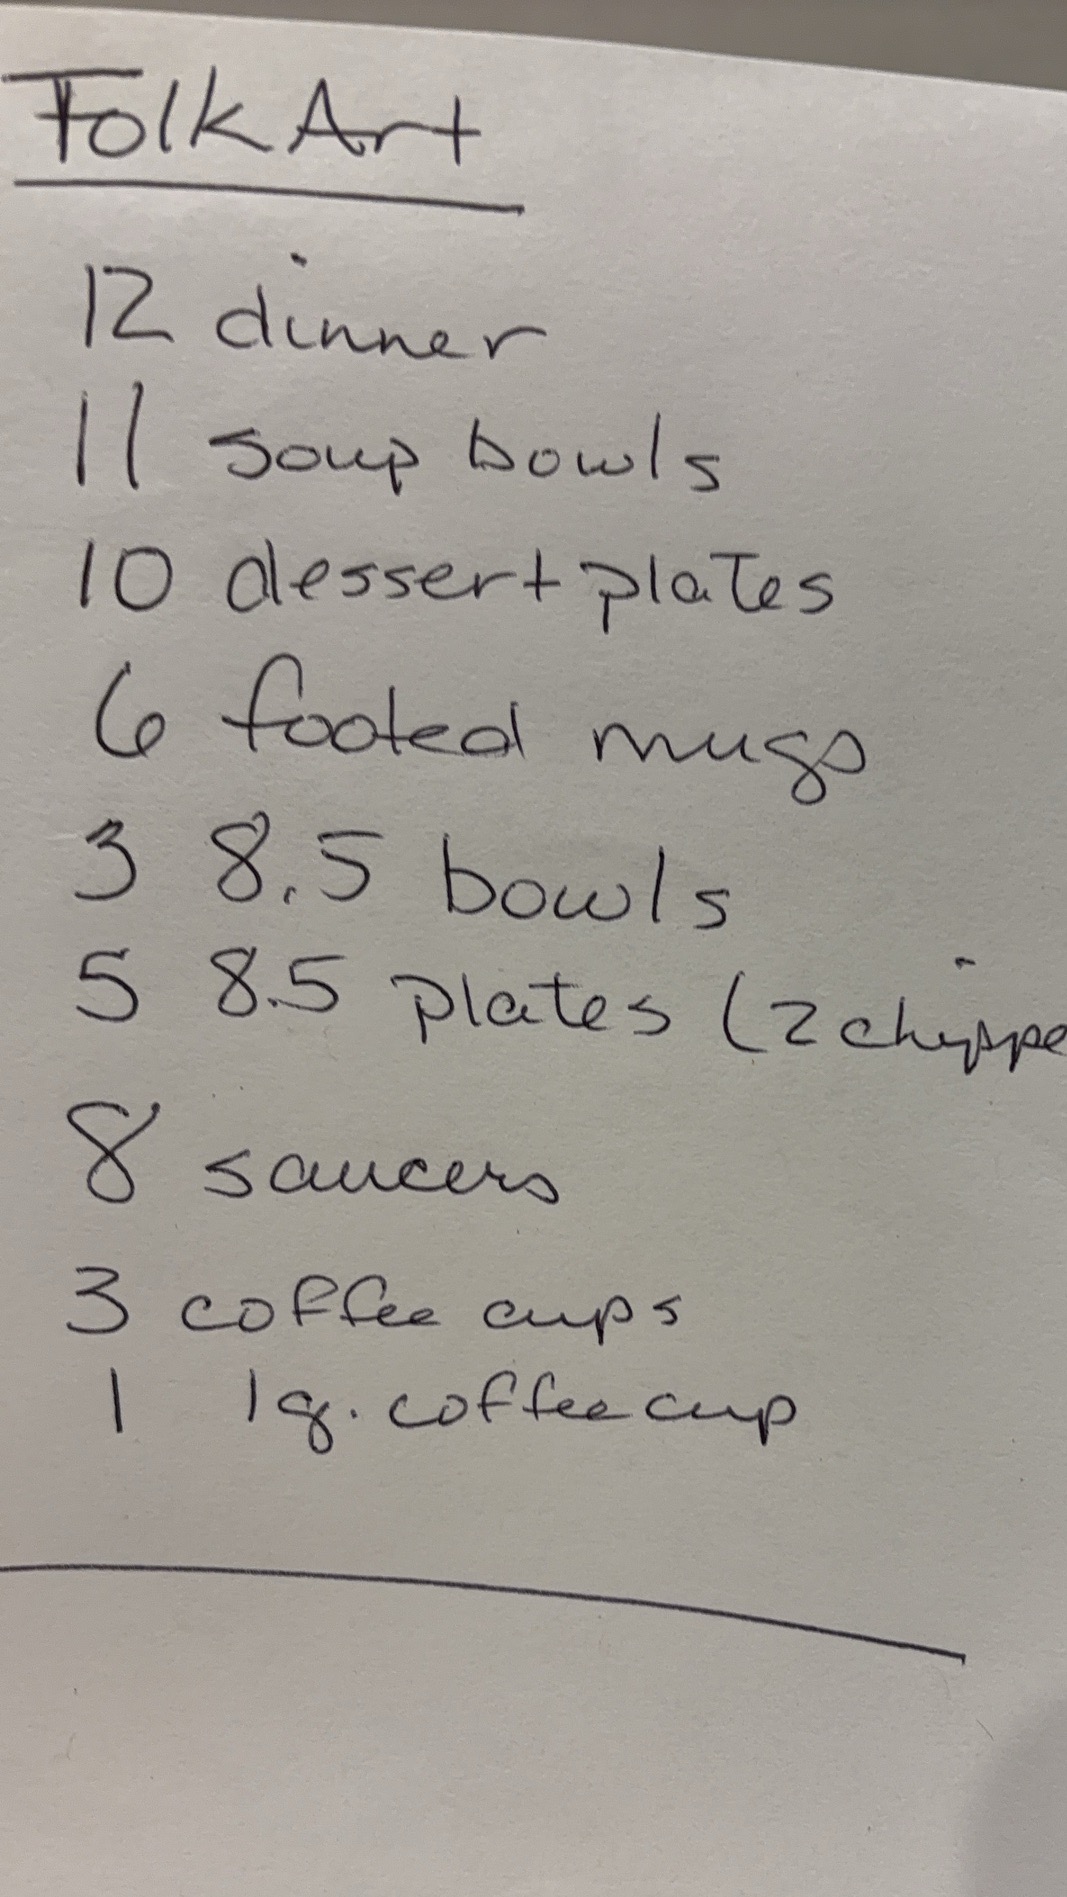 Folk Art
12 dinner
11 soup bowls
10 dessert plates
6 footed mugs
3 8.5 bowls
5 8.5 plates (2 chippe
8 saucers
3 coffee cups
1 lg. coffee cup